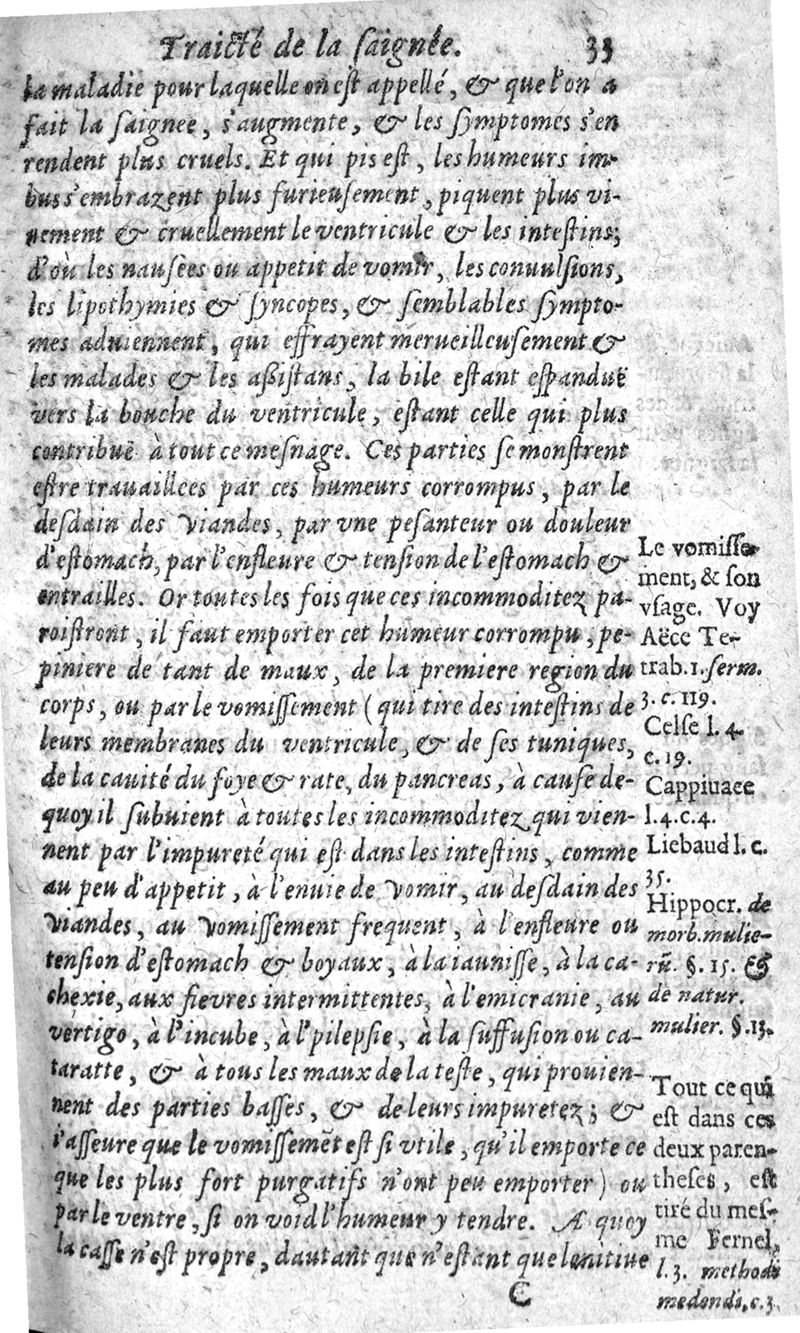 Traicté de la saignée. 33
la maladie pour laquelle on est appellé, & que l'on a
fait la saignee, s'augmente, & les symptomes s'en
rendent plus cruels. Et qui pis est, les humeurs im-
bus s'embrazent plus furieusement, piquent plus vi-
uement & cruellement le ventricule & les intestins;
d'où les nausées ou appetit de vomir, les conuulsions,
les lipothymies & syncopes, & semblables sympto-
mes aduiennent, qui effrayent merueilleusement &
les malades & les aßistans, la bile estant espanduë
vers la bouche du ventricule, estant celle qui plus
contribuë à tout ce mesnage. Ces parties se monstrent
estre trauaillees par ces humeurs corrompus, par le
desdain des viandes, par vne pesanteur ou douleur
d'estomach, par l'enfleure & tension de l'estomach &
entrailles. Or toutes les fois que ces incommoditez pa-
roistront, il faut emporter cet humeur corrompu, pe-
piniere de tant de maux, de la premiere region du
corps, ou par le vomissement (qui tire des intestins de
leurs membranes du ventricule, & de ses tuniques,
de la cauité du foye & rate, du pancreas, à cause de-
quoy il subuient à toutes les incommoditez qui vien-
nent par l'impureté qui est dans les intestins, comme
au peu d'appetit, à l'enuie de vomir, au desdain des
viandes, au vomissement frequent, à l'enfleure ou
tension d'estomach & boyaux, à la iaunisse, à la ca-
chexie, aux fievres intermittentes, à l'emicranie, au
vertigo, à l'incube, à l'pilepsie, à la suffusion ou ca-
taratte, & à tous les maux de la teste, qui prouien-
nent des parties basses, & de leurs impuretez; &
i'asseure que le vomissemẽt est si vtile, qu'il emporte ce
que les plus fort purgatifs n'ont peu emporter) ou
par le ventre, si on void l'humeur y tendre. A quoy
la casse n'est propre, dautant que n'estant que lenitiue
C
Le vomisse-
ment, & son
vsage. Voy
Aëce Te-
trab. 1. serm.
3. c. 119.
Celse l. 4.
c. 19.
Cappiuace
l. 4. c. 4.
Liebaud l. c.
35.
Hippocr. de
morb. mulie-
rũ. §. 15. &
de natur.
mulier. §. 13.
Tout ce qui
est dans ces
deux paren-
theses, est
tiré du mes-
me Fernel,
l. 3. methodi
medendi, c. 3.